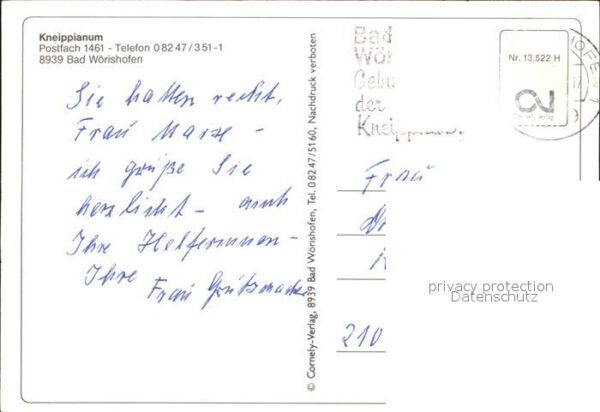 Kneippianum
Postfach 1461 - Telefon 0 82 47 / 3 51-1
8939 Bad Wörishofen
Sie hatten recht,
Frau
ich grüße Sie
herzlichst - auch
Ihre Helferinnen -
Ihre
Frau
© Cornely-Verlag, 8939 Bad Wörishofen, Tel. 0 82 47/51 60, Nachdruck verboten
Bad
Wör
Gebu
der
Kneipp
Nr. 13.522 H
Cornely-Verlag
HOFEN 1
Frau
210
privacy protection
Datenschutz